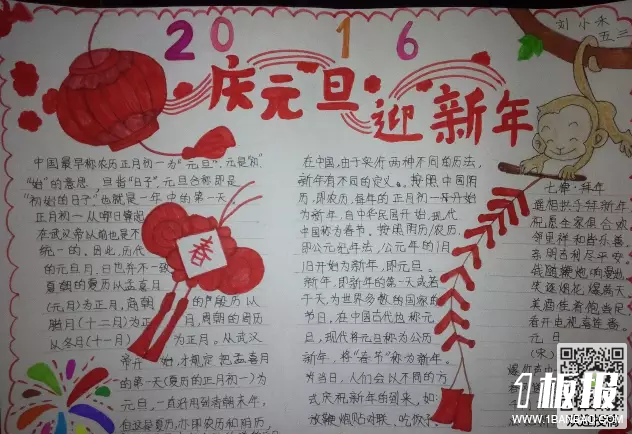 2016
刘小禾
五三
庆元旦
迎新年
中国最早称农历正月初一为"元旦",元是"初"
"始"的意思,旦指"日子",元旦合称即是
"初始的日子",也就是一年中的第一天。
正月初一从哪日算起
在武汉帝以前也是不
统一的。因此,历代
的元旦月、日也并不一致
夏朝的夏历以孟喜月
(元月)为正月,商朝的殷历以
腊月(十二月)为正月,周朝的周历
以冬月(十一月)为正月。从武汉
帝开始,才规定把孟喜月
的第一天(夏历的正月初一)为
元旦,一直沿用到清朝末年,
但这是夏历,亦即农历和阴历
春
在中国,由于实府两种不同的历法,
新年有不同的定义。按照中国阴
历,即农历,每年的正月初一
为新年,自中华民国开始,现代
中国称为春节。按照阴历/农历,
即公元纪年法,公元年的1月
1日开始为新年,即元旦。
新年,即新年的第一天或若
干天,为世界多数的国家的
节日,在中国古代也称元
旦,现代将元旦称为公历
新年,将"春节"称为新年。
当日,人们会以不同的方
式庆祝新年的到来,如:
放鞭炮贴对联、吃饺子
七律·拜年
遥相拱手拜新年
祝愿全家俱合欢
邻里祥和皆乐善
亲朋吉利尽平安
美酒佳肴
开电视喜连番
元日
(宋)
1板报
WWW.1BANBAO.COM